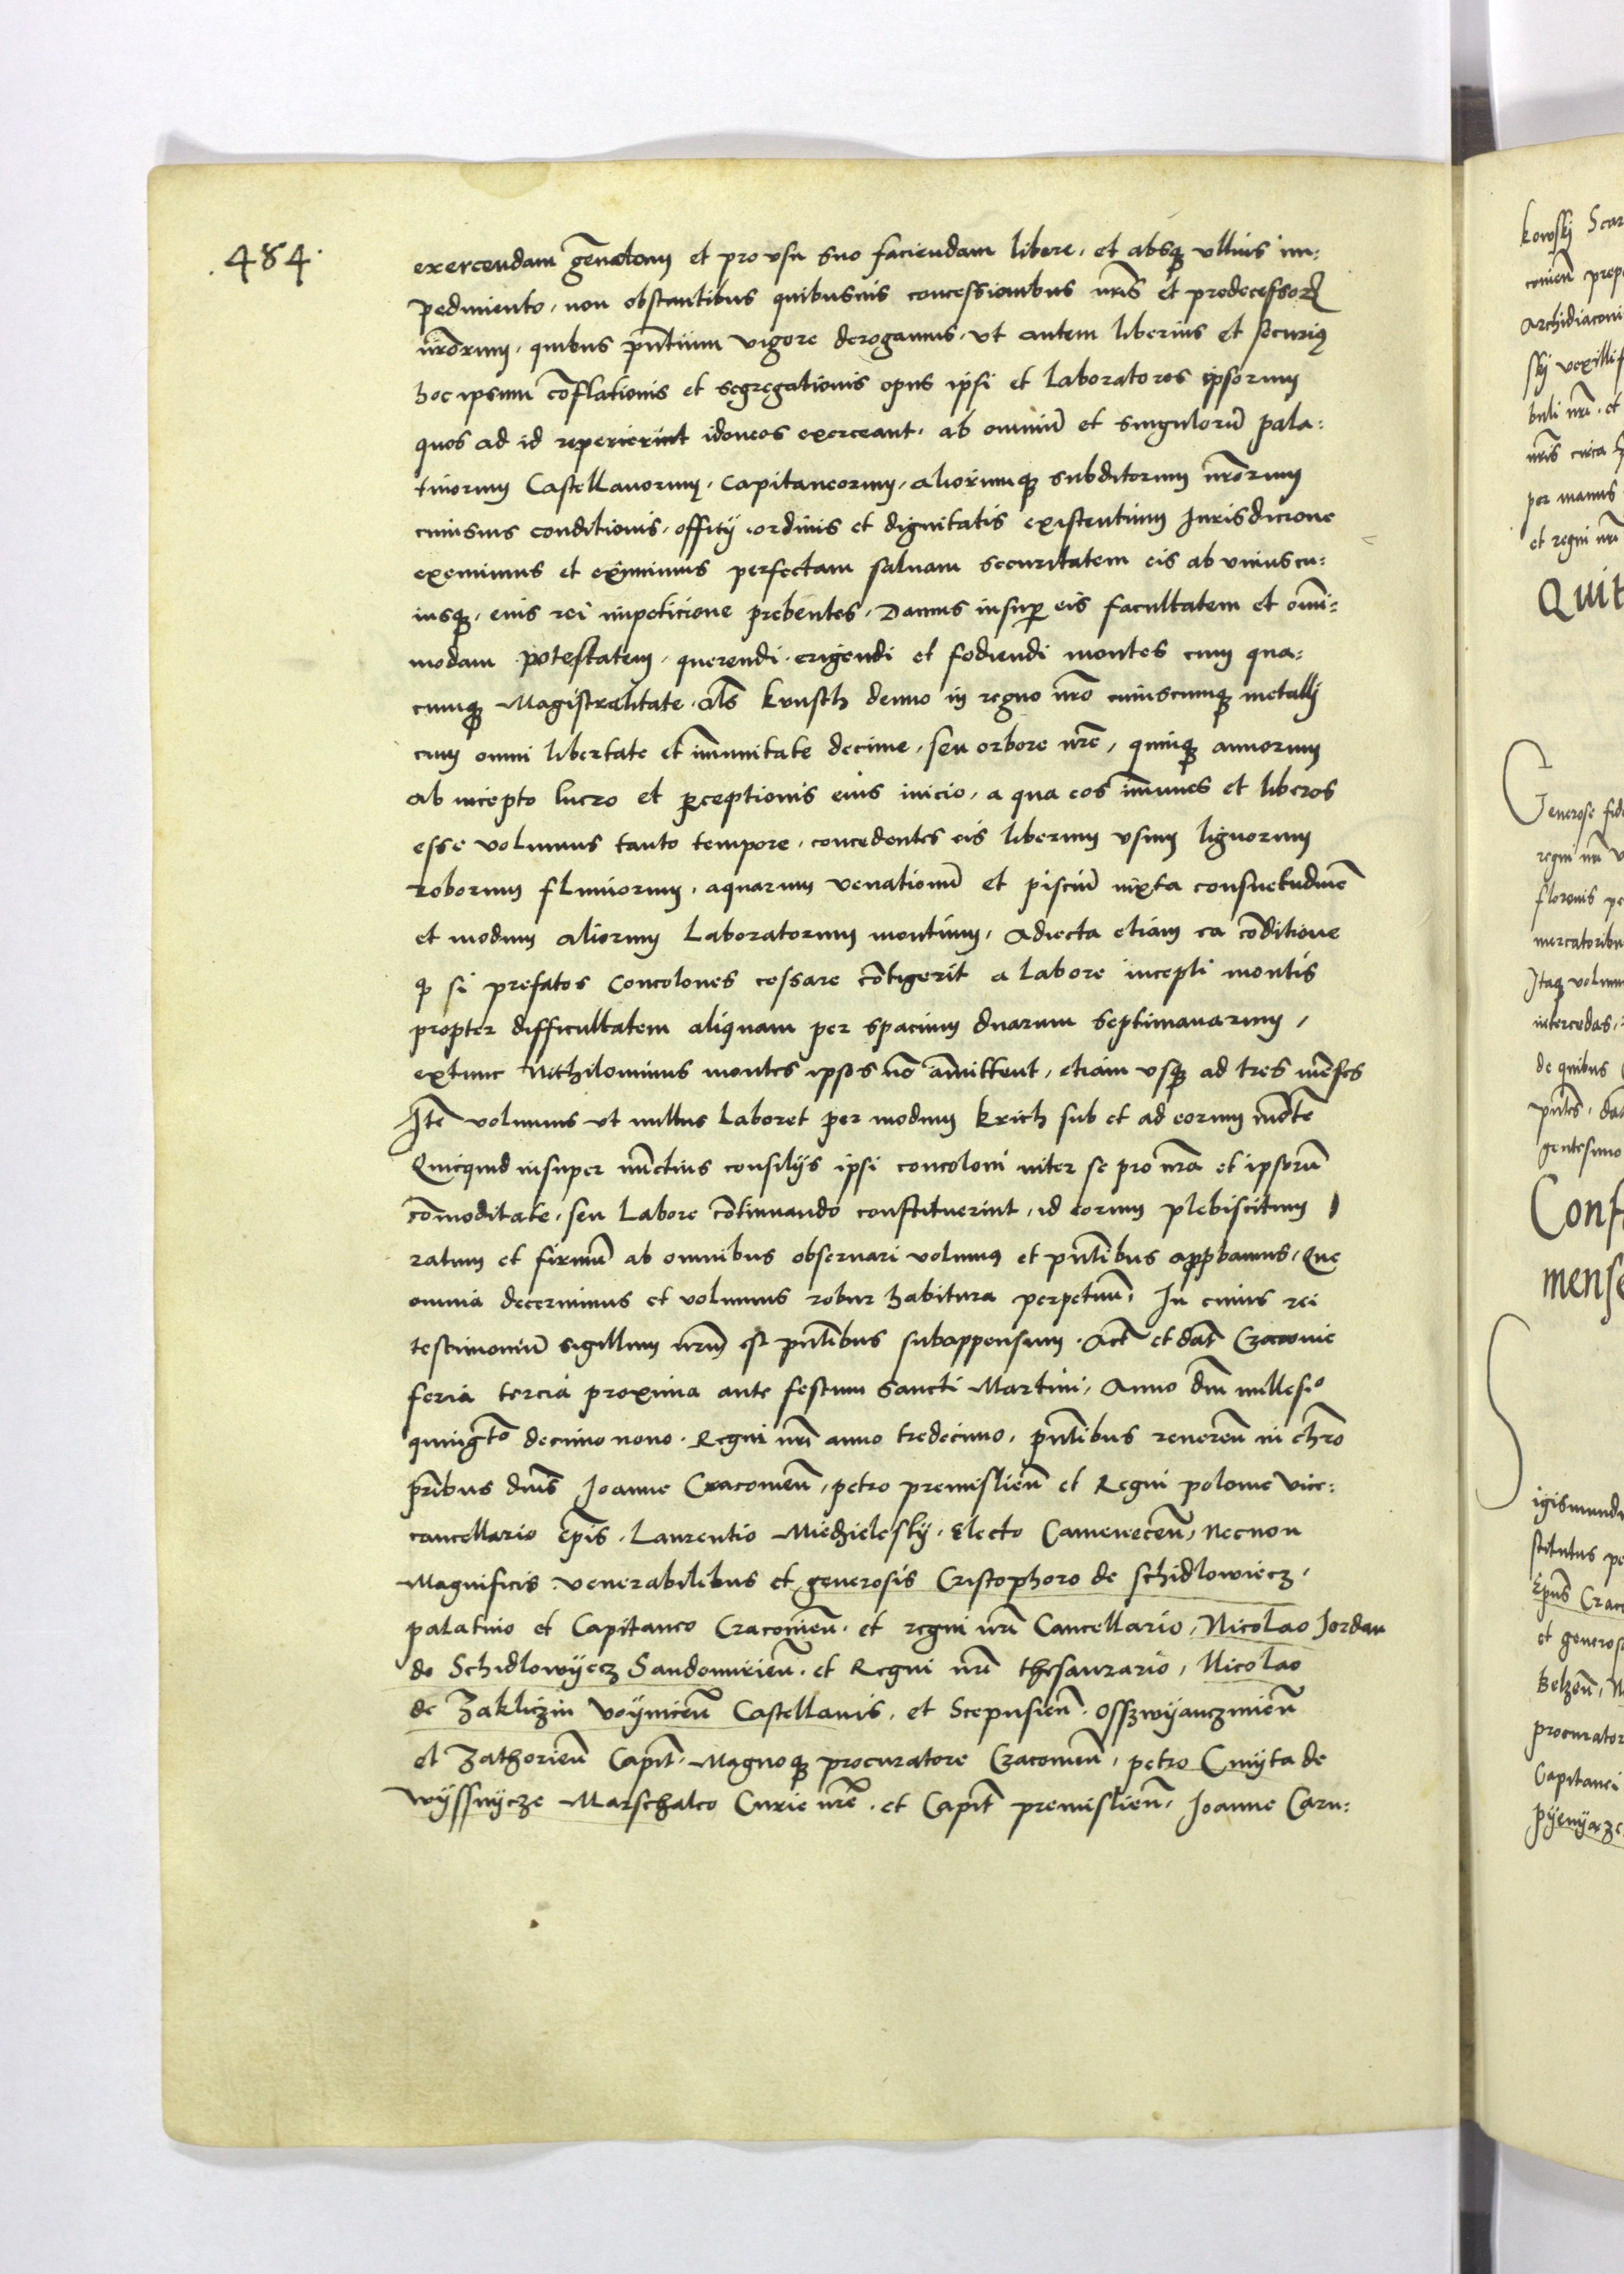 .484.
exercendam gen̄alem et pro vsu suo faciendam libere, et absq̨ ullius im:
pedimento, non obstantibus quibusuis concessionibus nr̄is et predecessorꝝ
nr̄orum, quibus pn̄tium vigore derogamus, vt autem liberius et securiꝰ
hoc ipsum cōflationis et segregationis opus ipsi et Laboratores ipsorum
quos ad id reperierint idoneos exerceant, ab omniū et singulorū pala:
tinorum Castellanorum, Capitaneorum, aliorumq̨ subditorum nr̄orum
cuiusuis conditionis, offitÿ, ordinis et dignitatis existentium Jurisdicione
exemimus et eximimus perfectam saluam securitatem eis ab vniuscu:
iusq̨, eius rei impeticione prebentes, Damus insuꝑ eis facultatem et omī:
modam potestatem, querendi, erigendi et fodiendi montes cum qua:
cumq̨ Magistralitate, al̄s kunsth denuo in regno nr̄o cuiuscumq̨ metallj
cum omni libertate et im̄unitate decime, seu orbore nr̄e, quinq̨ annorum
ab incepto lucro et ꝑceptionis eius inicio, a qua eos im̄unes et liberos
esse volumus tanto tempore, concedentes eis liberum vsum lignorum
roborum fluuiorum, aquarum venationū et pisciū iuxta consuetudinē
et modum aliorum Laboratorum montium, Adiecta etiam ea cōditione
ꝙ si prefatos Concolones cessare cōtigerit a labore incepti montis
propter difficultatem aliquam per spacium duarum septimanarum,
extunc Nichilominus montes ipsos nō am̄ittent, etiam vsq̨ ad tres mēses
Itē volumus vt nullus Laboret per modum krich sub et ad eorum mōte
Quicquid insuper iunctius consilÿs ipsi concoloni inter se pro nr̄a et ipsorū
cōmoditate, seu Labore cōtinuando constituerint, id eorum plebiscitum
ratum et firmū ab omnibus obseruari volumꝰ et pn̄tibus approbamus, Que
omnia decernimus et volumus robur habitura perpetuū, In cuius rei
testimoniū sigillum nr̄um est pn̄tibus subappensum. Act̄ et dat̄ Cracouie
feria tercia proxima ante festum sancti Martini, Anno dn̄i millesiº
quingto decimo nono. Regni nr̄i anno tredecimo, pn̄tibus reuerēn in chr̄o
pr̄ibus dn̄is Joanne Cracouien̄, petro premislien̄ et Regni polonie vice:
cancellario Ep̄is, Laurentio Miedzielesky, Electo Camenecen̄, Necnon
Magnificis venerabilibus et generosis Cristophoro de schidlowiecz,
palatino et Capitaneo Cracouien̄, et regni nr̄i Cancellario, Nicolao Jordan
de Schidlowÿecz Sandomirien̄, et Regni nr̄i thesaurario, Nicolao
de Zakliczin voÿnicen̄ Castellanis, et Scepusien̄, Osszwÿanczimien̄
et Zathorien̄ Capit̄, Magnoq̨ procuratore Cracouien̄, petro Cmÿta de
wÿssnycze Marschalco Curie nr̄e, et Capit̄ premislien̄, Joanne Carn:
kowskj Scar
Archidiaconi
buli nr̄i, et
nr̄is circa
per manus
et regni nr̄i
Quit
Generose fide
regni nr̄i
florenis
mercatoribu
Itaq̨ volum
intercedas,
de quibus
pn̄tes, dat
gentesimo
Conf
mense
Sigismundu
stitutus
Ep̄us Crac
et generos
Belzen̄, N
procurator
Capitanei